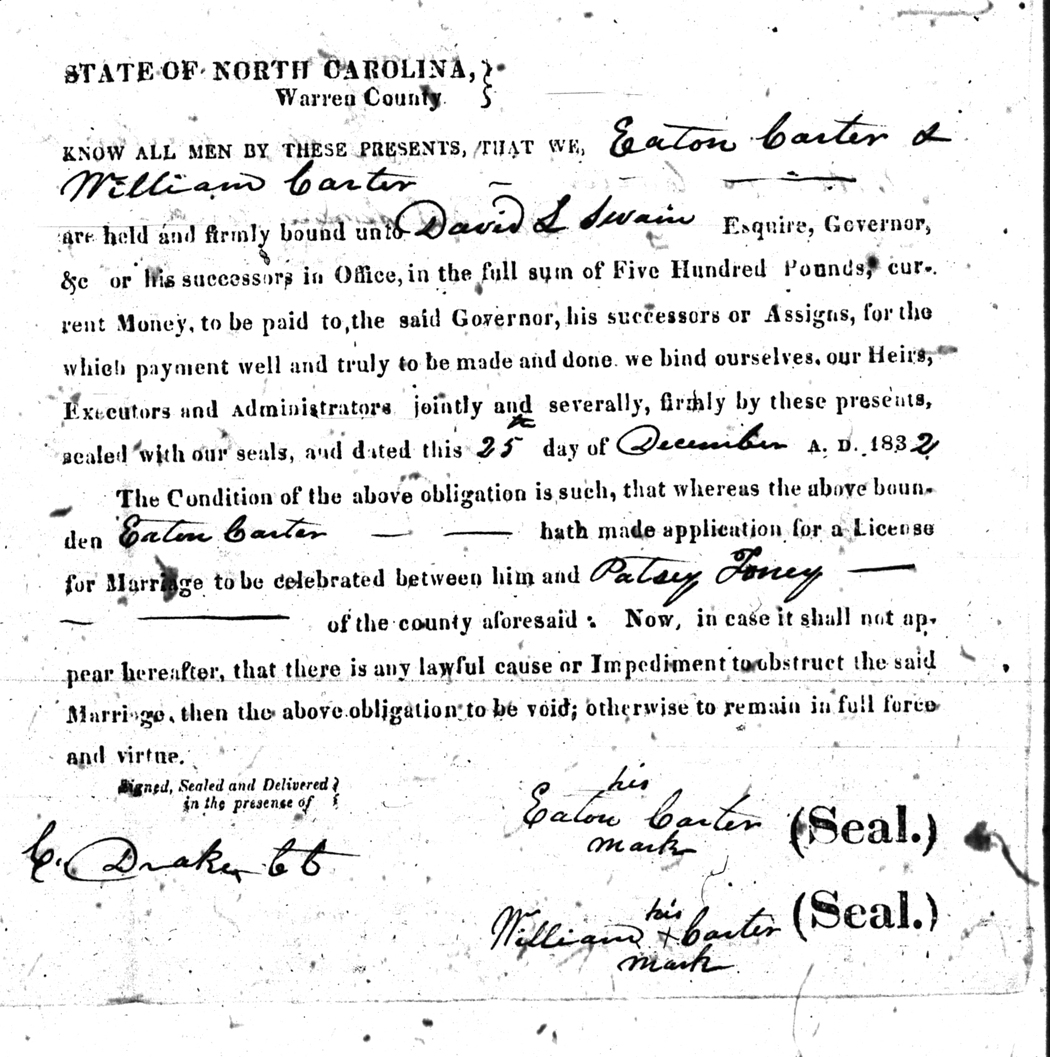 STATE OF NORTH CAROLINA,
Warren County
KNOW ALL MEN BY THESE PRESENTS, THAT WE, Eaton Carter &
William Carter
are held and firmly bound unto David L Swain Esquire, Governor,
&c or his successors in Office, in the full sum of Five Hundred Pounds, cur-
rent Money, to be paid to, the said Governor, his successors or Assigns, for the
which payment well and truly to be made and done. we bind ourselves, our Heirs,
Executors and Administrators jointly and severally, firmly by these presents,
sealed with our seals, and dated this 25th day of December A. D. 1832
The Condition of the above obligation is such, that whereas the above boun-
den Eaton Carter — — hath made application for a License
for Marriage to be celebrated between him and Patsey Toney —
— — of the county aforesaid: Now, in case it shall not ap-
pear hereafter, that there is any lawful cause or Impediment to obstruct the said
Marriage, then the above obligation to be void; otherwise to remain in full force
and virtue.
Signed, Sealed and Delivered
in the presence of
his
Eaton Carter (Seal.)
mark
C. Drake
his
William + Carter (Seal.)
mark